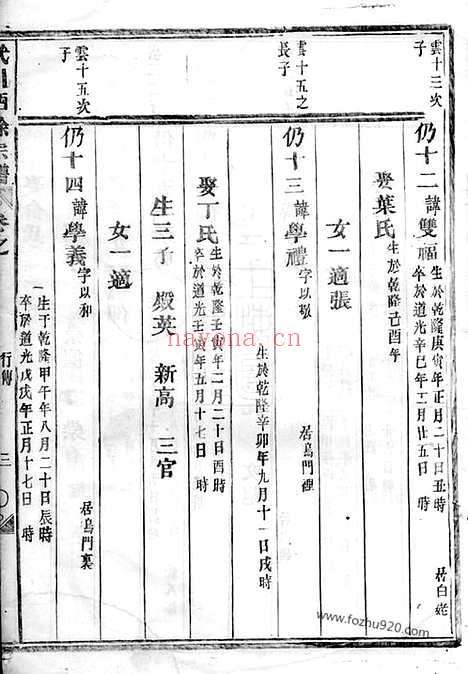 雲十三次子
仍十二諱雙福
生於乾隆庚寅年正月二十日丑時
卒於道光辛巳年三月廿五日 時
居白姥
娶葉氏 生於乾隆己酉年
女一適張
雲十五之長子
仍十三諱學禮 字以敬
生於乾隆辛卯年九月十一日戌時
居烏門裡
娶丁氏
生於乾隆壬寅年二月二十日酉時
卒於道光壬寅年五月十七日 時
生三子 殿英 新高 三官
女一適
雲十五次子
仍十四諱學義 字以和
生于乾隆甲午年八月二十日辰時
卒於道光戊戌年正月十七日 時
居烏門裏
西徐宗譜
行傳
三
nayona.cn
www.fozhu920.com